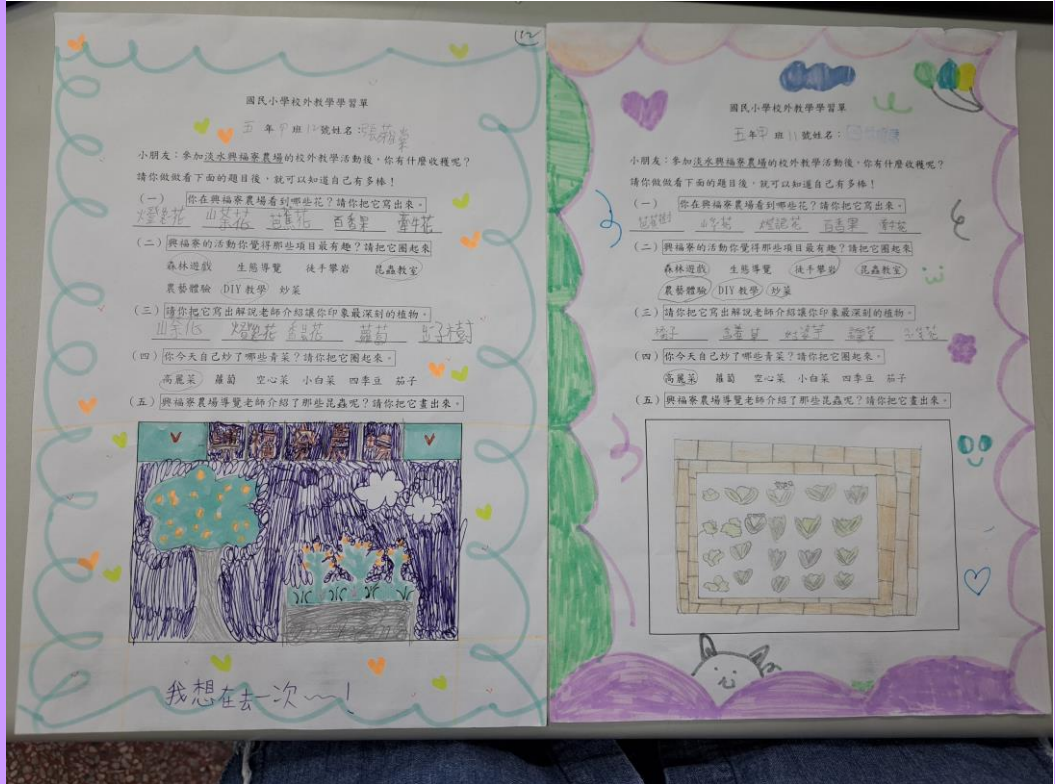 12
國民小學校外教學學習單
五年甲班12號姓名:
小朋友:參加淡水興福寮農場的校外教學活動後,你有什麼收穫呢?
請你做做看下面的題目後,就可以知道自己有多棒!
(一) 你在興福寮農場看到哪些花?請你把它寫出來。
山茶花 芭蕉花 百香果 牽牛花
(二) 興福寮的活動你覺得那些項目最有趣?請把它圈起來
森林遊戲 生態導覽 徒手攀岩 昆蟲教室
農藝體驗 DIY教學 炒菜
(三) 請你把它寫出解說老師介紹讓你印象最深刻的植物。
山茶花 蘿蔔
(四) 你今天自己炒了哪些青菜?請你把它圈起來。
高麗菜 蘿蔔 空心菜 小白菜 四季豆 茄子
(五) 興福寮農場導覽老師介紹了那些昆蟲呢?請你把它畫出來。
我想在去一次~~!
國民小學校外教學學習單
五年甲班11號姓名:
小朋友:參加淡水興福寮農場的校外教學活動後,你有什麼收穫呢?
請你做做看下面的題目後,就可以知道自己有多棒!
(一) 你在興福寮農場看到哪些花?請你把它寫出來。
百香果
(二) 興福寮的活動你覺得那些項目最有趣?請把它圈起來
森林遊戲 生態導覽 徒手攀岩 昆蟲教室
農藝體驗 DIY教學 炒菜
(三) 請你把它寫出解說老師介紹讓你印象最深刻的植物。
(四) 你今天自己炒了哪些青菜?請你把它圈起來。
高麗菜 蘿蔔 空心菜 小白菜 四季豆 茄子
(五) 興福寮農場導覽老師介紹了那些昆蟲呢?請你把它畫出來。